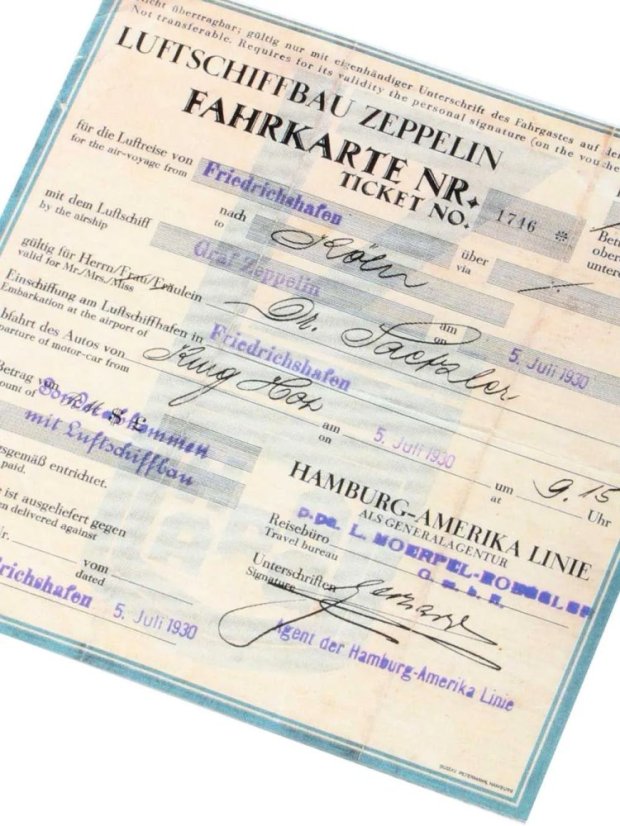 Nicht übertragbar; gültig nur mit eigenhändiger Unterschrift des Fahrgastes auf
Not transferable. Requires for its validity the personal signature (on the
LUFTSCHIFFBAU ZEPPELIN
FAHRKARTE NR.
TICKET NO. 1746 ✻
für die Luftreise von Friedrichshafen nach Köln über
for the air-voyage from to via
mit dem Luftschiff Graf Zeppelin
by the airship
gültig für Herrn/Frau/Fräulein Dr. am 5. Juli 1930
valid for Mr./Mrs./Miss on
Einschiffung am Luftschiffhafen in Friedrichshafen
Embarkation at the airport of
Abfahrt des Autos von am 5. Juli 1930 um 9.15 Uhr
parture of motor-car from on at
Betrag von
ount of
mit Luftschiffbau
sgemäß entrichtet.
paid.
e ist ausgeliefert gegen
en delivered against
Nr. vom
dated
drichshafen 5. Juli 1930
HAMBURG-AMERIKA LINIE
ALS GENERALAGENTUR
Reisebüro
Travel bureau
G. m. b. H.
Unterschriften
Signature
Agent der Hamburg-Amerika Linie